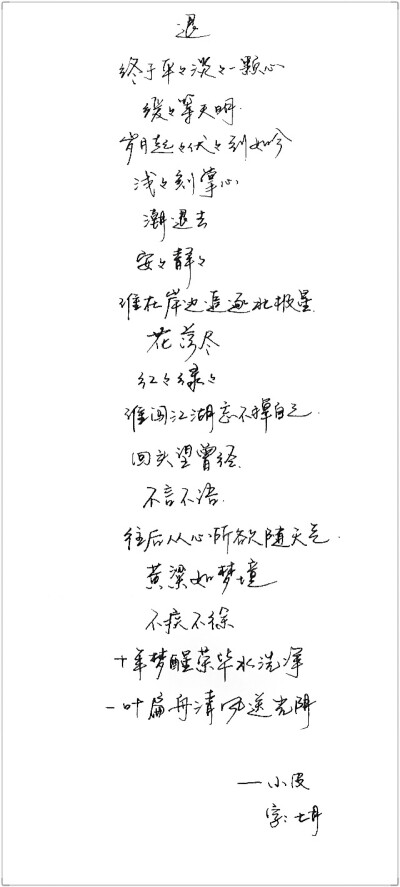 退
终于平々淡々一颗心
缓々等天明.
岁月起々伏々到如今
浅々刻掌心
潮退去
安々静々
谁在岸边追逐北极星
花落尽
红々绿々
谁闯江湖忘不掉自己.
回头望曾经.
不言不语.
往后从心所欲随天气.
黄粱如梦境
不疾不徐
十年梦醒荣华水洗净
一叶扁舟清风送光阴
——小皮
字:七月